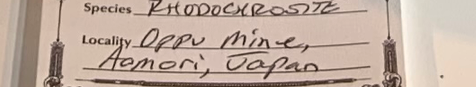 Species RHODOCHROSITE
Locality Oppu Mine,
Aomori, Japan